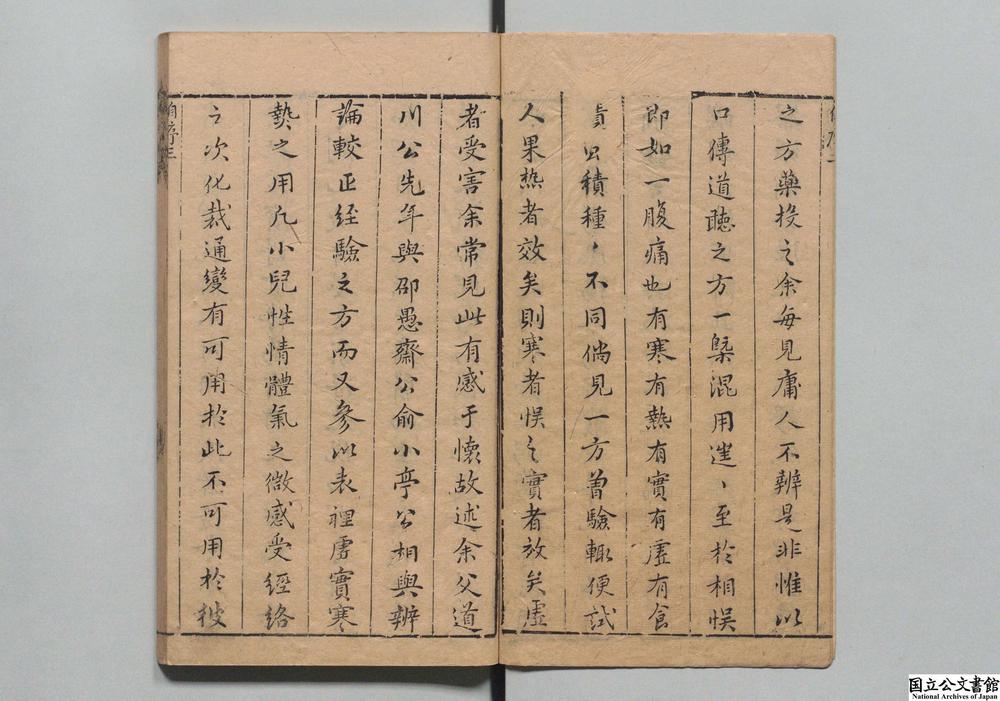 之方藥投之余每見庸人不辨是非惟以
口傳道聽之方一槩混用迬〻至於相悞
即如一腹痛也有寒有熱有實有虛有食
積種〻不同倘見一方曾驗輙便試
人果热者效矣則寒者悞之實者放矣虛
者受害余常見此有感于懷故述余父道
川公先年與邵愚齋公俞小亭公相與辨
論較正經驗之方而又參以表裡虛實寒
熱之用凡小兒性情體氣之微感受經絡
之次化裁通變有可用於此不可用於彼
自序三
国立公文書館
National Archives of Japan